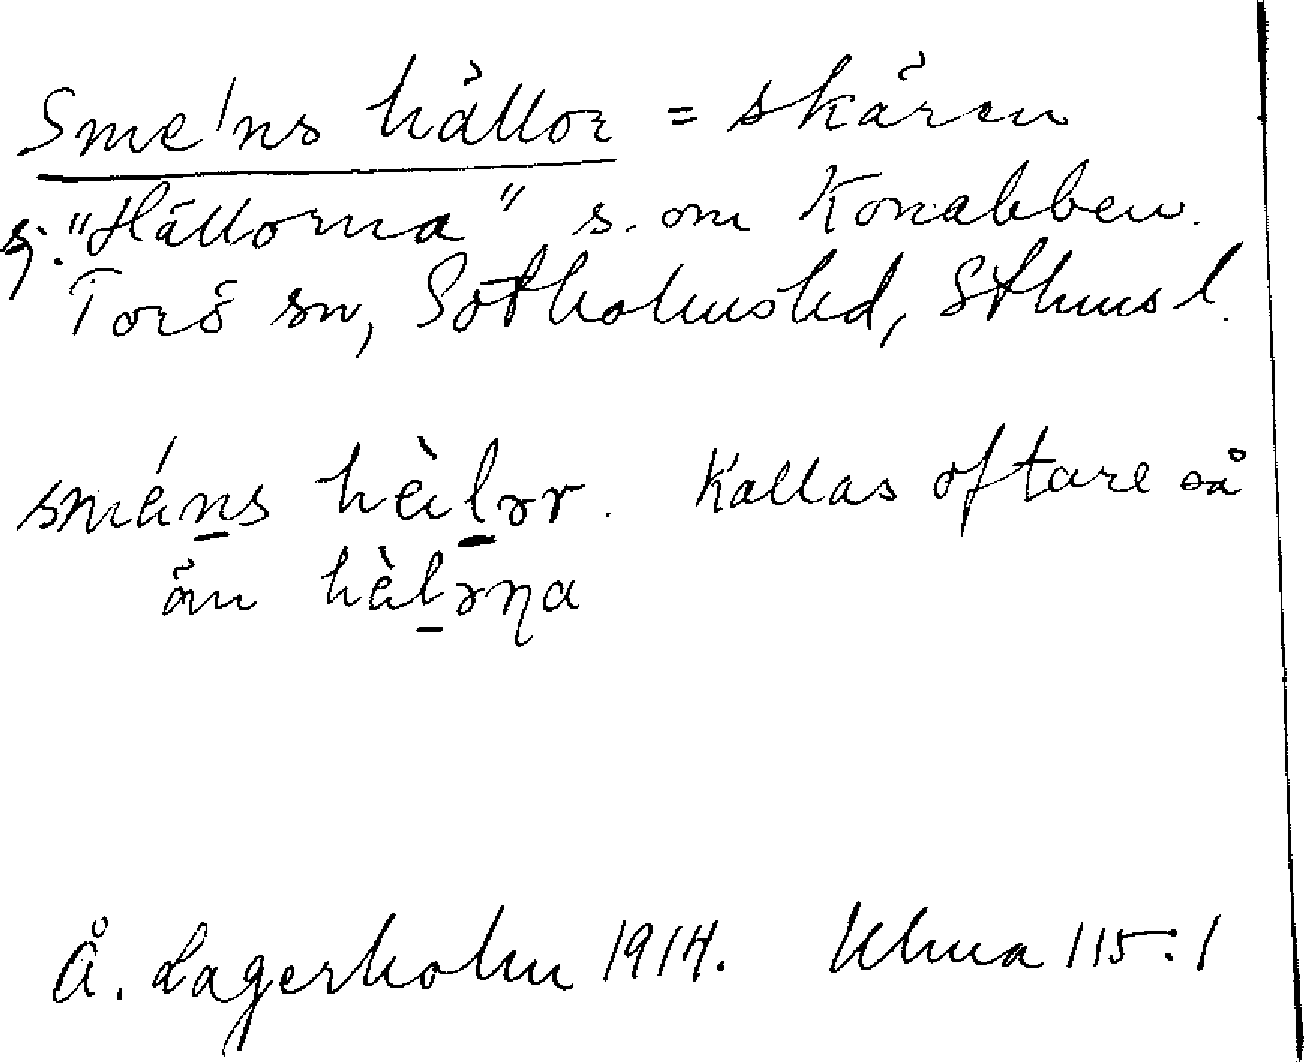 Sme'ns hällor = skären
g: "Hällorna" s. om Konabben.
Torö sn, Sotholmshd, Sthmsl.
smén̲s hèl̲ər. Kallas oftare så
än hèl̲əɳa
Å. Lagerholm 1914. Uhma 115:1